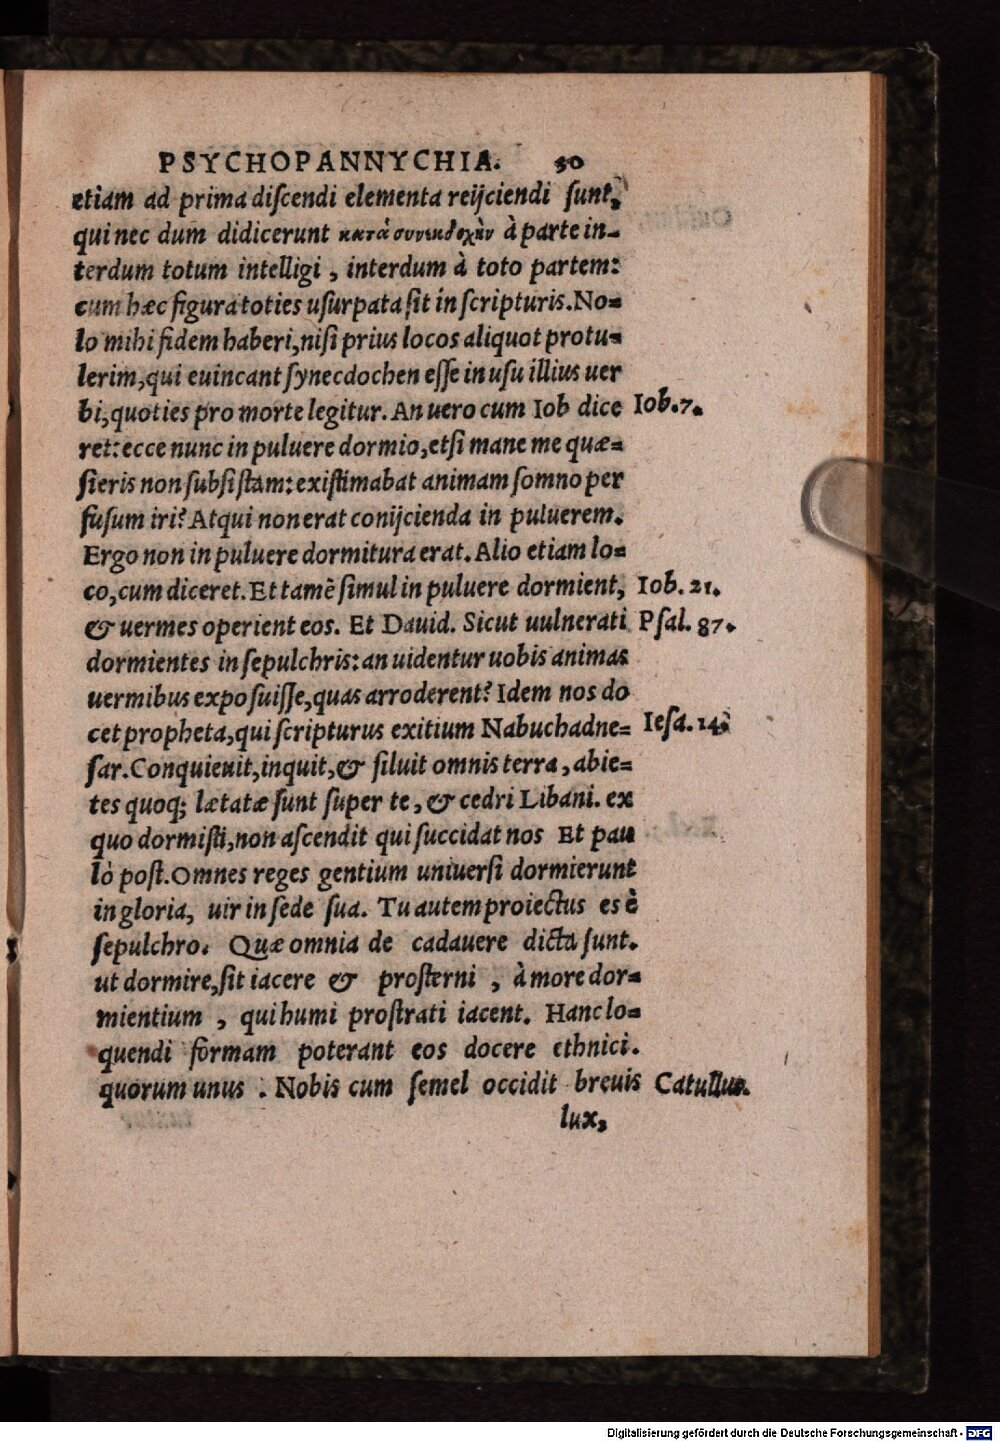 PSYCHOPANNYCHIA. 50
etiam ad prima discendi elementa reijciendi sunt,
qui nec dum didicerunt κατὰ συνεκδοχὴν à parte in-
terdum totum intelligi, interdum à toto partem:
cum hæc figura toties usurpata sit in scripturis. No=
lo mihi fidem haberi, nisi prius locos aliquot protu=
lerim, qui euincant synecdochen esse in usu illius uer
bi, quoties pro morte legitur. An uero cum Iob dice Iob. 7.
ret: ecce nunc in puluere dormio, etsi mane me quæ=
sieris non subsistam: existimabat animam somno per
fusum iri? Atqui non erat conijcienda in puluerem.
Ergo non in puluere dormitura erat. Alio etiam lo=
co, cum diceret. Et tamē simul in puluere dormient, Iob. 21.
& uermes operient eos. Et Dauid. Sicut uulnerati Psal. 87.
dormientes in sepulchris: an uidentur uobis animas
uermibus exposuisse, quas arroderent? Idem nos do
cet propheta, qui scripturus exitium Nabuchadne= Iesa. 14.
sar. Conquieuit, inquit, & siluit omnis terra, abie=
tes quoq; lætatæ sunt super te, & cedri Libani. ex
quo dormisti, non ascendit qui succidat nos Et pau
lò post. Omnes reges gentium uniuersi dormierunt
in gloria, uir in sede sua. Tu autem proiectus es è
sepulchro. Quæ omnia de cadauere dicta sunt.
ut dormire, sit iacere & prosterni, à more dor=
mientium, qui humi prostrati iacent. Hanc lo=
quendi formam poterant eos docere ethnici.
quorum unus. Nobis cum semel occidit breuis Catullus.
lux,
Digitalisierung gefördert durch die Deutsche Forschungsgemeinschaft - DFG